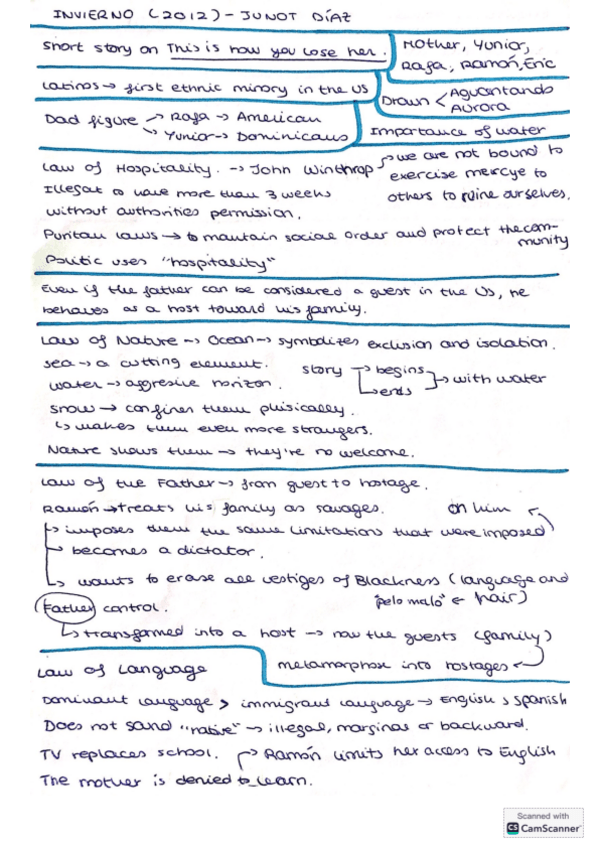 INVIERNO (2012) - JUNOT DÍAZ
Short story on This is how you lose her.
Mother, Yunior,
Rafa, Ramón, Eric
Latinos → first ethnic minory in the US
Drawn < Aguantando
Aurora
Dad figure → Rafa → American
→ Yunior → Dominicans
Importance of water
Law of Hospitality. → John Winthrop → we are not bound to
exercise mercye to
others to ruine ourselves.
Illegal to have more than 3 weeks
without authorities permission.
Puritan laws → to maintain social order and protect the com-
munity
Politic uses "hospitality"
Even if the father can be considered a guest in the US, he
behaves as a host toward his family.
Law of Nature → Ocean → symbolizes exclusion and isolation.
sea → a cutting element.
water → aggresive horizon.
story → begins
→ ends } → with water
snow → confines them phisically.
↳ makes them even more strangers.
Nature shows them → they're no welcome.
Law of the Father → from guest to hostage.
Ramón → treats his family as savages.
→ imposes them the same limitations that were imposed
on him
→ becomes a dictator.
↳ wants to erase all vestiges of Blackness (language and
"pelo malo" ← hair)
Father control.
↳ transformed into a host → now the guests (family)
metamorphose into hostages ←
Law of Language
Dominant language > immigrant language → English > Spanish
Does not sand "native" → illegal, marginas or backward.
TV replaces school.
→ Ramón limits her access to English
The mother is denied to learn.
Scanned with
CS CamScanner